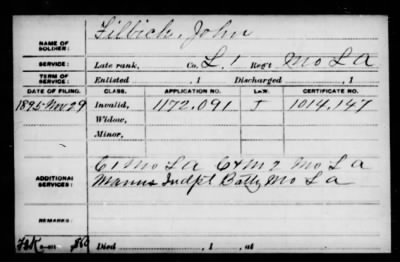 Filbick, John
NAME OF SOLDIER:
SERVICE: Late rank, Co. L, 1 Reg't Mo L A
TERM OF SERVICE: Enlisted , 1 Discharged , 1
DATE OF FILING. CLASS. APPLICATION NO. LAW. CERTIFICATE NO.
1895 Nov 29 Invalid, 1172,091 J 1014,147
Widow,
Minor,
C 1 Mo L A C & M 2 Mo L A
ADDITIONAL SERVICES: Manns Indpt Batty Mo L A
REMARKS:
Died , 1 , at